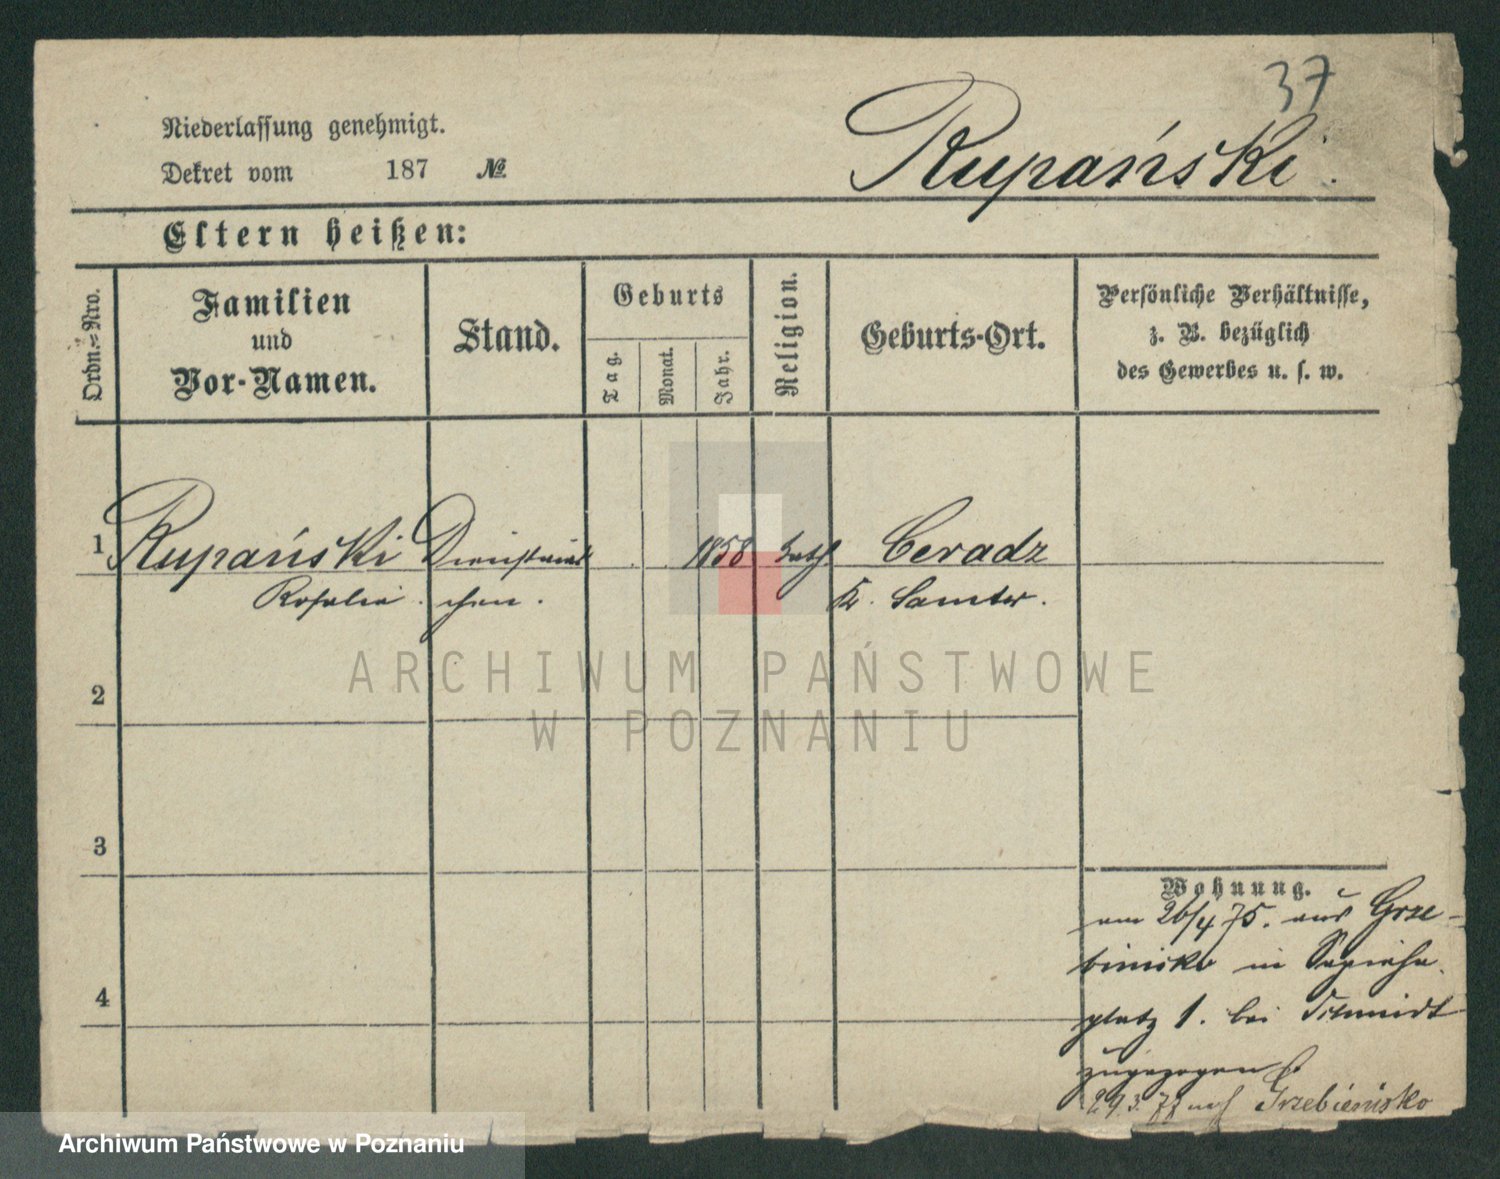 37
Niederlassung genehmigt.
Dekret vom 187 №
Rupański.
Eltern heißen:
Ordn.=Nro.
Familien
und
Vor-Namen.
Stand.
Geburts
Tag.
Monat.
Jahr.
Religion.
Geburts-Ort.
Persönliche Verhältnisse,
z. B. bezüglich
des Gewerbes u. s. w.
1 Rupański Dienstmäd 1858 kath Ceradz
Rosalie chen. Kr. Samter.
2
3
4
Wohnung.
am 26/4 75. aus Grze-
binisko in Sapieha
platz 1. bei Schmidt
zugezogen
29.3.77 nach Grzebienisko
ARCHIWUM PAŃSTWOWE
W POZNANIU
Archiwum Państwowe w Poznaniu